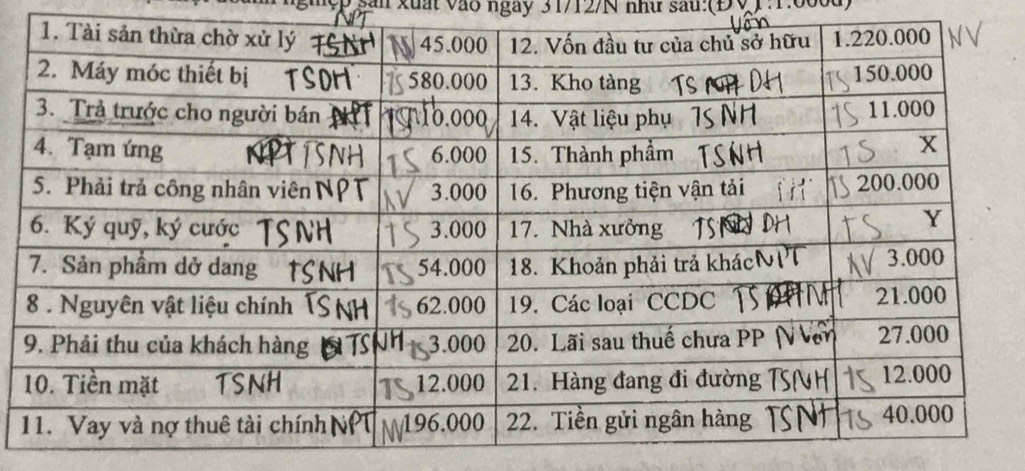 sản xuất vào ngày 31/12/N như sau:(ĐVT:1.000đ)
NPT vốn
1. Tài sản thừa chờ xử lý TSNH NV 45.000 12. Vốn đầu tư của chủ sở hữu 1.220.000 NV
2. Máy móc thiết bị TSDH TS 580.000 13. Kho tàng TS DH TS 150.000
3. Trả trước cho người bán NPT TSNH 10.000 14. Vật liệu phụ TSNH TS 11.000
4. Tạm ứng NPT TSNH TS 6.000 15. Thành phẩm TSNH TS X
5. Phải trả công nhân viên NPT NV 3.000 16. Phương tiện vận tải TS 200.000
6. Ký quỹ, ký cước TSNH TS 3.000 17. Nhà xưởng TS DH TS Y
7. Sản phẩm dở dang TSNH TS 54.000 18. Khoản phải trả khác NPT NV 3.000
8 . Nguyên vật liệu chính TSNH TS 62.000 19. Các loại CCDC TS NH 21.000
9. Phải thu của khách hàng TSNH TS 3.000 20. Lãi sau thuế chưa PP N Vốn 27.000
10. Tiền mặt TSNH TS 12.000 21. Hàng đang đi đường TSNH TS 12.000
11. Vay và nợ thuê tài chính NPT NV 196.000 22. Tiền gửi ngân hàng TSNH TS 40.000